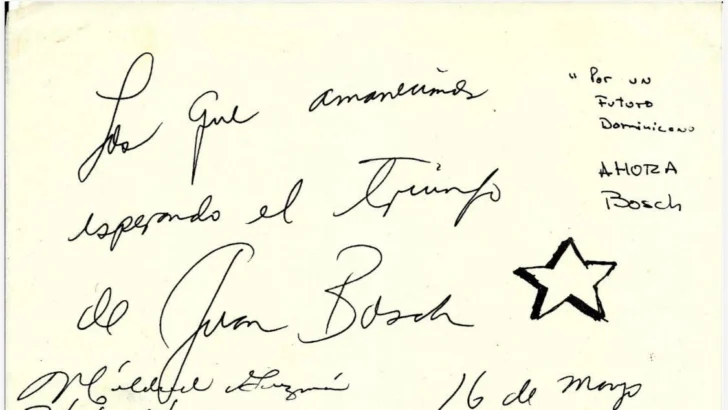 Los que amanecimos
esperando el triunfo
de Juan Bosch
" Por un
Futuro
Dominicano
AHORA
Bosch
Mildred Guzmán
16 de mayo